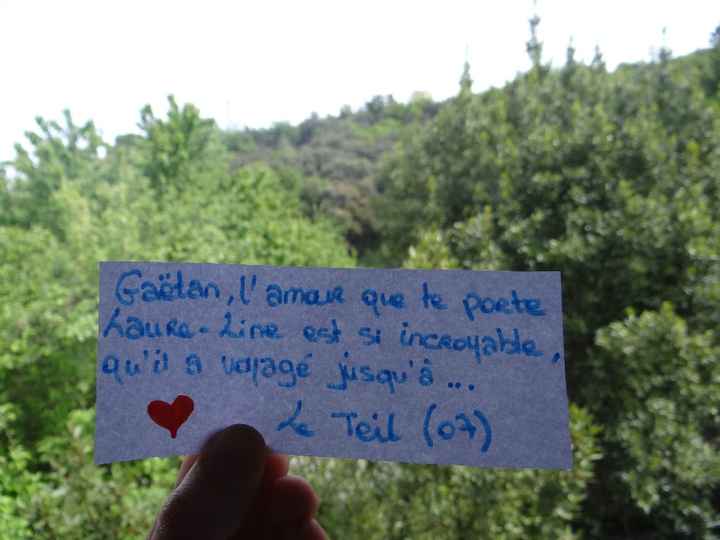 Gaëtan, l'amour que te porte
Laure-Line est si incroyable,
qu'il a voyagé jusqu'à ...
Le Teil (07)